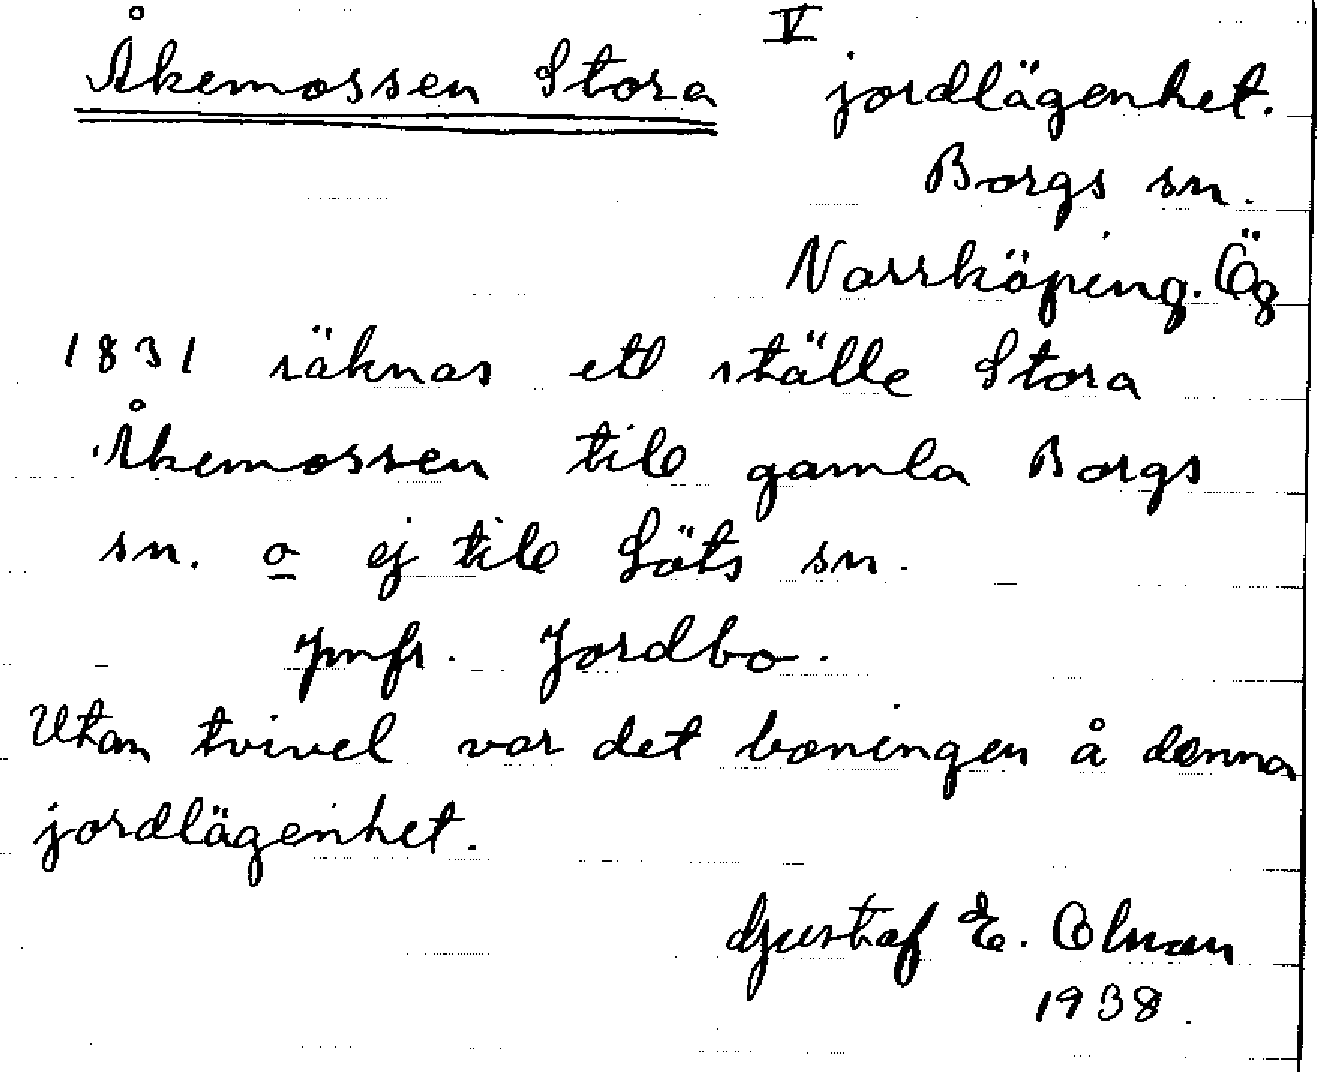 Åkemossen Stora V jordlägenhet.
Borgs sn.
Norrköping. Ög
1831 räknas ett ställe Stora
Åkemossen till gamla Borgs
sn. o ej till Löts sn.
Jmfr. Jordbo.
Utan tvivel var det boningen å denna
jordlägenhet.
Gustaf E.
1938.